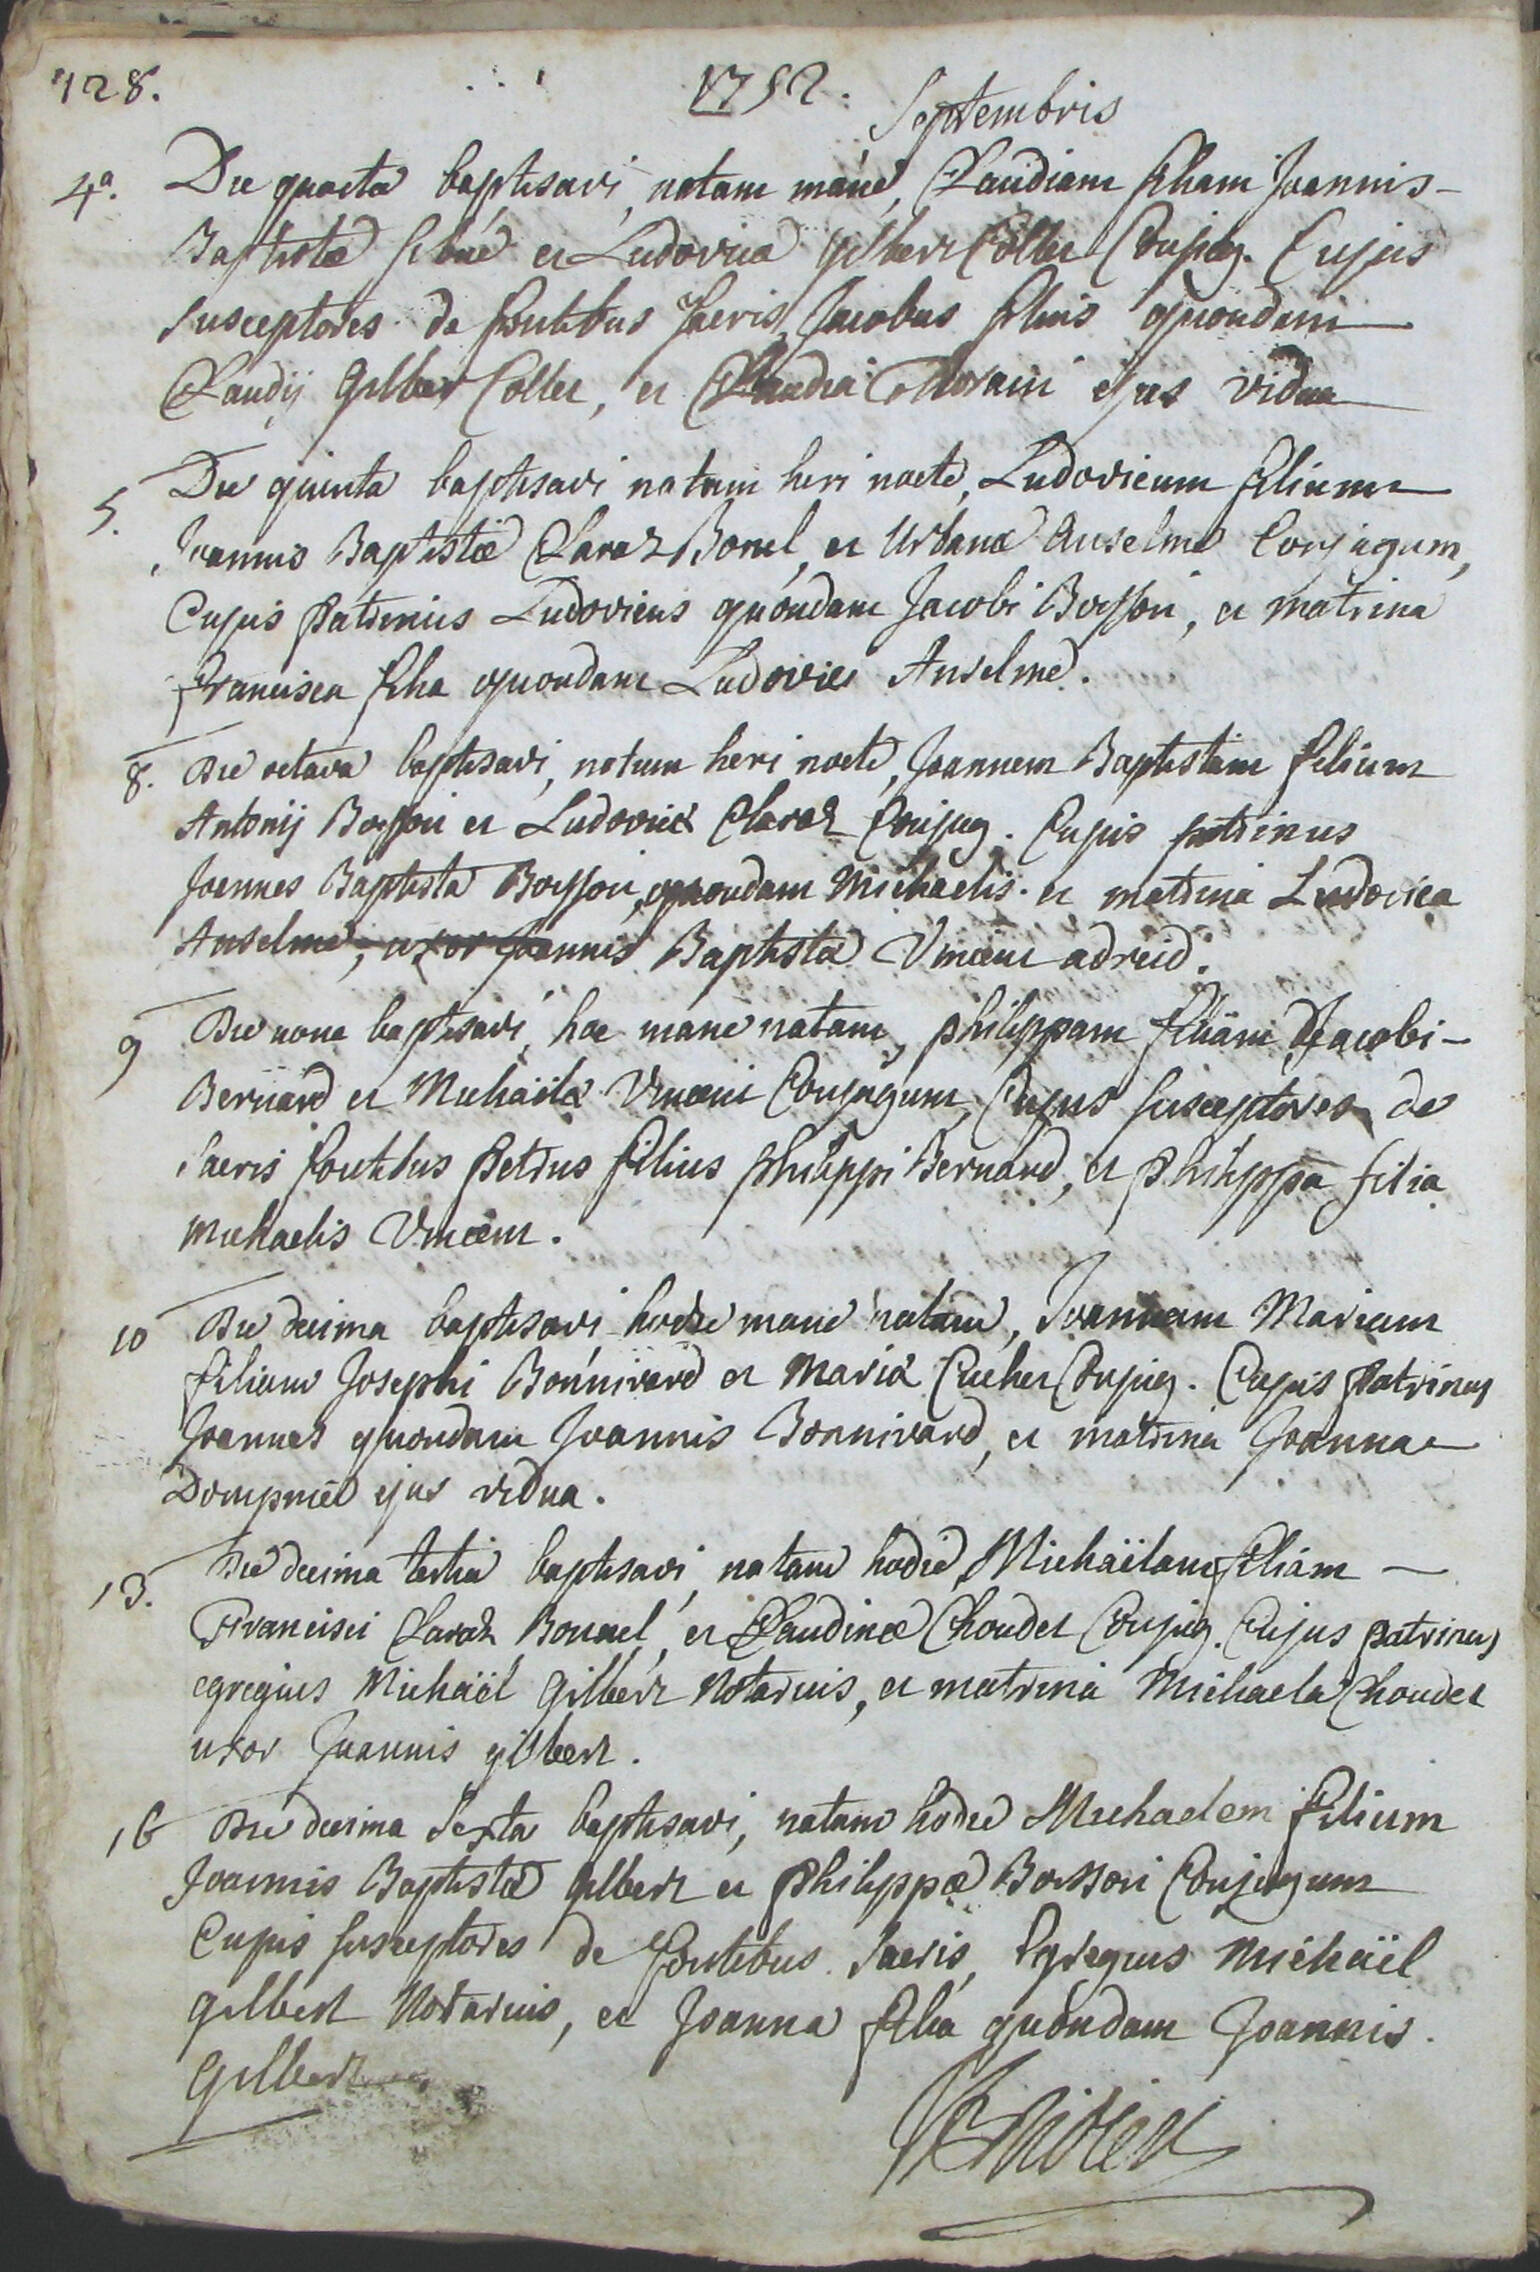 128.
1752.
Septembris
4ª. Die quarta baptisavi, natam mane, Claudiam filiam Joannis-
Baptistæ et Ludovicæ Gilbert Collet Conjug. Cujus
Susceptores de fontibus Sacris, Jacobus filius quondam
Claudij Gilbert Collet, et Claudia ejus vidua
5. Die quinta baptisavi natum heri nocte, Ludovicum filium
Joannis Baptistæ Claraz Bonel, et Urbanæ Anselme Conjugum,
Cujus Patrinus Ludovicus quondam Jacobi Boysson, et matrina
Francisca filia quondam Ludovici Anselme.
8. Die octava baptisavi, natum heri nocte, Joannem Baptistam filium
Antonij Boysson et Ludovicæ Claraz Conjug. Cujus patrinus
Joannes Baptista Boysson, quondam Michaelis. et matrina Ludovica
Anselme, uxor Joannis Baptistæ Vincent
9 Die nona baptisavi, hoc mane natam, philippam filiam Jacobi-
Bernard et Michaïlæ Vincent Conjugum, Cujus susceptores de
Sacris fontibus Petrus filius philippi Bernard, et Philippa filia
Michaelis Vincent.
10 Die decima baptisavi hodie mane natam, Joannam Mariam
filiam Josephi Bonnivard et Mariæ Cuchet Conjug. Cujus Patrinus
Joannes quondam Joannis Bonnivard, et matrina Joanna
Dompnier ejus vidua.
13. Die decima tertia baptisavi, natam hodie, Michaïlam filiam
Francisci Claraz Bonnel, et Claudinæ Choudet Conjug. Cujus patrinus
egregius Michaël Gilbert Notarius, et matrina Michaela Choudet
uxor Joannis gilbert.
16 Die decima Sexta baptisavi, natum hodie Michaelem filium
Joannis Baptistæ Gilbert et Philippæ Bosson Conjugum
Cujus susceptores de fontibus Sacris, Egregius Michaël
gilbert Notarius, et Joanna filia quondam Joannis.
Gilbert